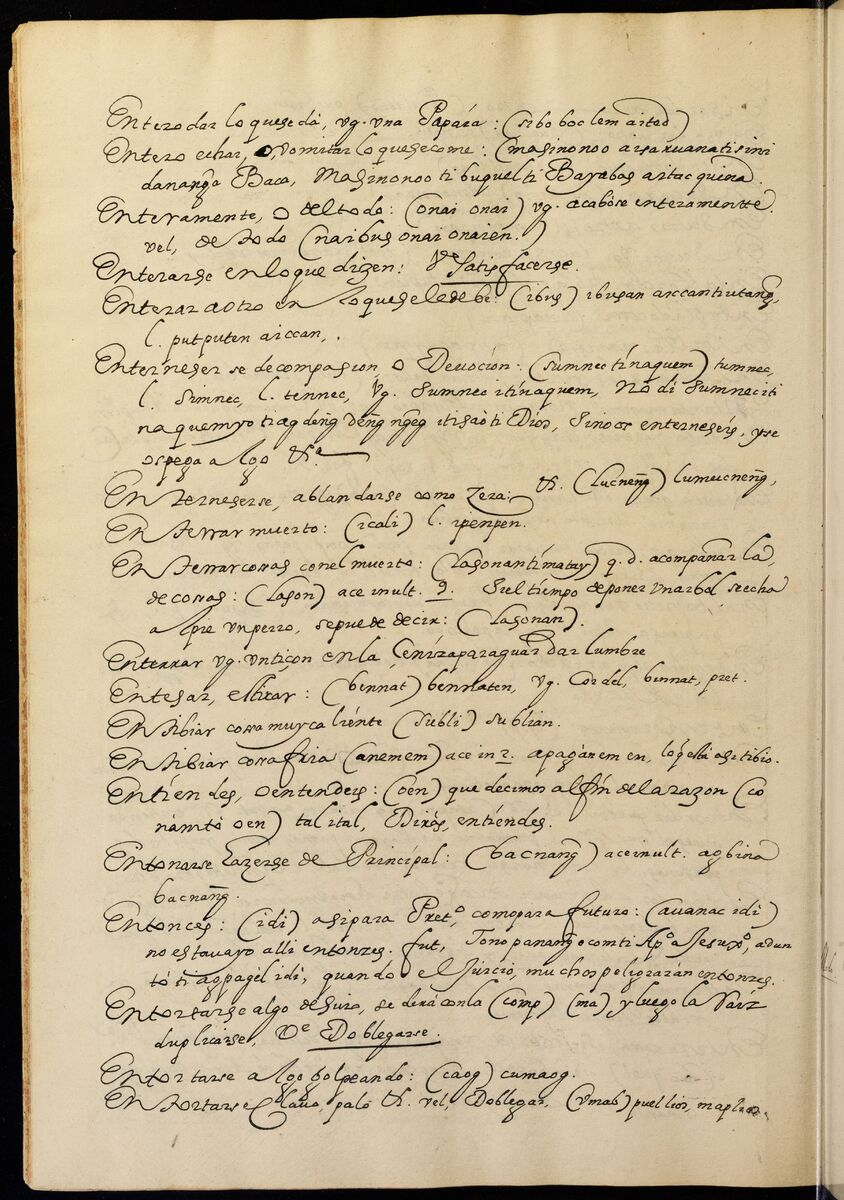 Entero dar lo quese dà, vg. vna Papàra: (sibo boclem aitod)
Entero echar, o, vomitar lo quese come: (masinonoo aisa
dananga Baca, masinonoo ti buquel ti Bayabas aitac quina.
Enteramente, o del todo: (onai onai) vg. acabòse enteramentte.
vel, de todo (naibus onai onaien.)
Enterarse en lo que dizen: Vᵉ Satisfacerse.
Enterar a otro en lo quese le debe: (ibus) ibusan
l. putputen aiccan,.
Enterneser se de compasion, o Devoción: (sumnec tínaquem) tumnec,
l. simnec, l. tennec, Vg. Sumnec itínaquem, No di Sumnec iti
naquemyo tiag deng̃ deng̃ ng̃eg itisaò ti Dios, Sino os enterneseis, yse
os pega algo &ᵃ
Enterneserse, ablandarse como Zera: &. (lucneng̃) lumucneng̃,
Enterrar muerto: (icali) l. ipenpen.
Enterrar cosas con el muerto: (Lasonantímatay) q. d. acompañar la,
de cosas: (Lason) ace in ult. 9. Si el tíempo de poner vn arbol se echa
al pie vn perro, se puede decir: (Lasonan).
Enterrar vg. vn tiçon en la Ceniza para guardar lumbre
Entesar, estirar: (bennat) bennaten, vg. Cordel, binnat, pret.
Entibiar cosa muy calíente (subli) sublian.
Entibiar cosa fria (anemem) ace in 2. apaganem en, lo q̃ està asi tibio.
Entíendes, o entendeis: (oén) que decimos al fín de la razon (co
nàmtò oen) tal i tal, Diràs, entíendes.
Entonarse hazerse de Príncipal: (bacnang̃) ace in ult. agbina
bacnang̃.
Entonces: (idi) asi para Pretᵒ, como para futuro: (auanac idi)
no estava yo allì entonzes. fut, Tono panang̃ocom ti Apᵒ a Jesuxᵒ, adun
tò ti agpagèl idi, quando el Juicio, muchos peligrarán entonzes.
Entortarse algo de suio, se dirà con la (comp) (ma) y luego la Raíz
duplicarse, Vᵉ Doblegarse.
Entortarse algo golpeando: (caog) cumaog.
Entortarse Clauo, palo &. vel, Doblegar,